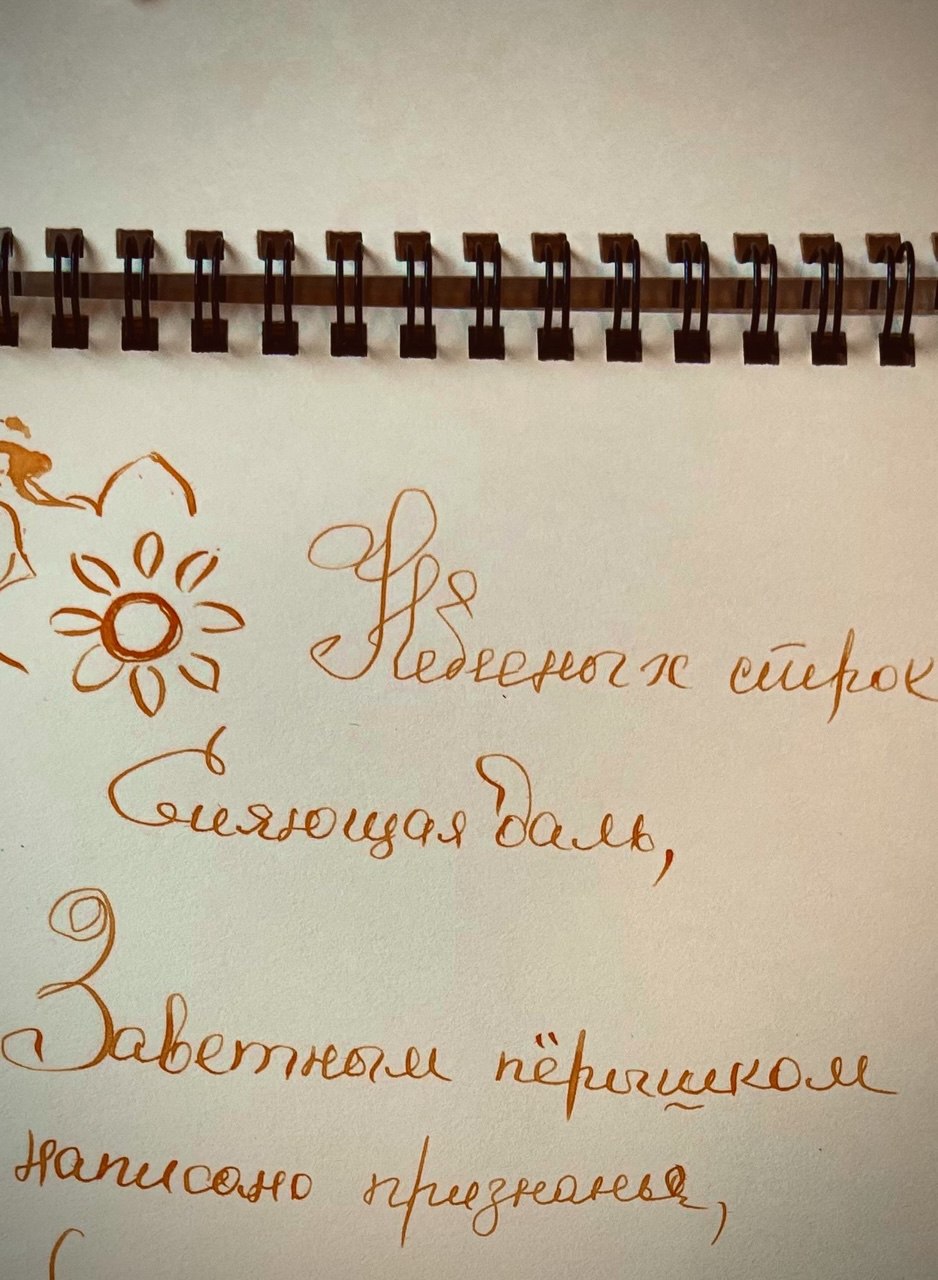 Небесных строк
Сияющая даль,
Заветным пёрышком
написано признанья,